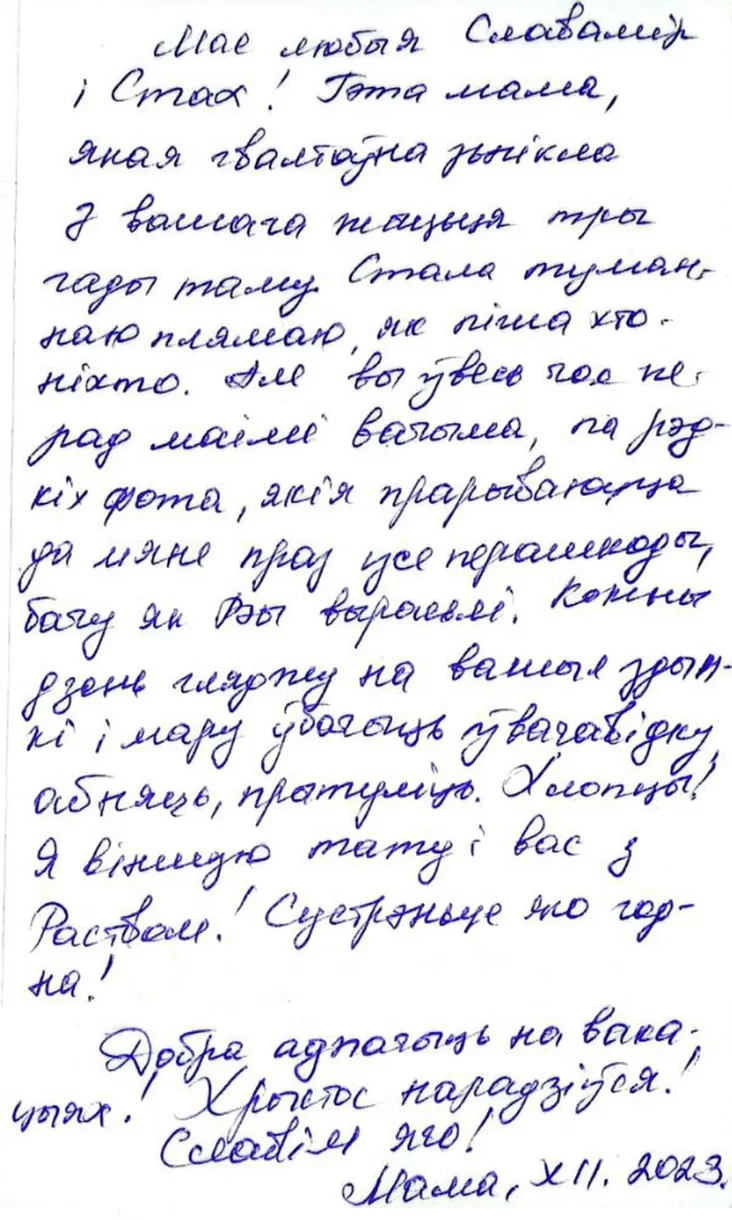 Мае любыя Славамір
і Стах! Гэта мама,
якая гвалтоўна зьнікла
з вашага жыцьця тры
гады таму. Стала туман-
наю плямаю, як піша хто-
ніхто. Але вы ўвесь час пе-
рад маімі вачыма, па рэд-
кіх фота, якія прарываюцца
да мяне праз усе перашкоды,
бачу як Вы выраслі. Кожны
дзень гляджу на вашыя здым-
кі і мару ўбачыць ўвачавідку,
абняць, прытуліць. Хлопцы!
Я віншую тату і вас з
Раством! Сустрэньце яго год-
на!
Добра адпачыць на вака-
цыях! Хрыстос нарадзіўся!
Славім яго!
Мама, XII. 2023.